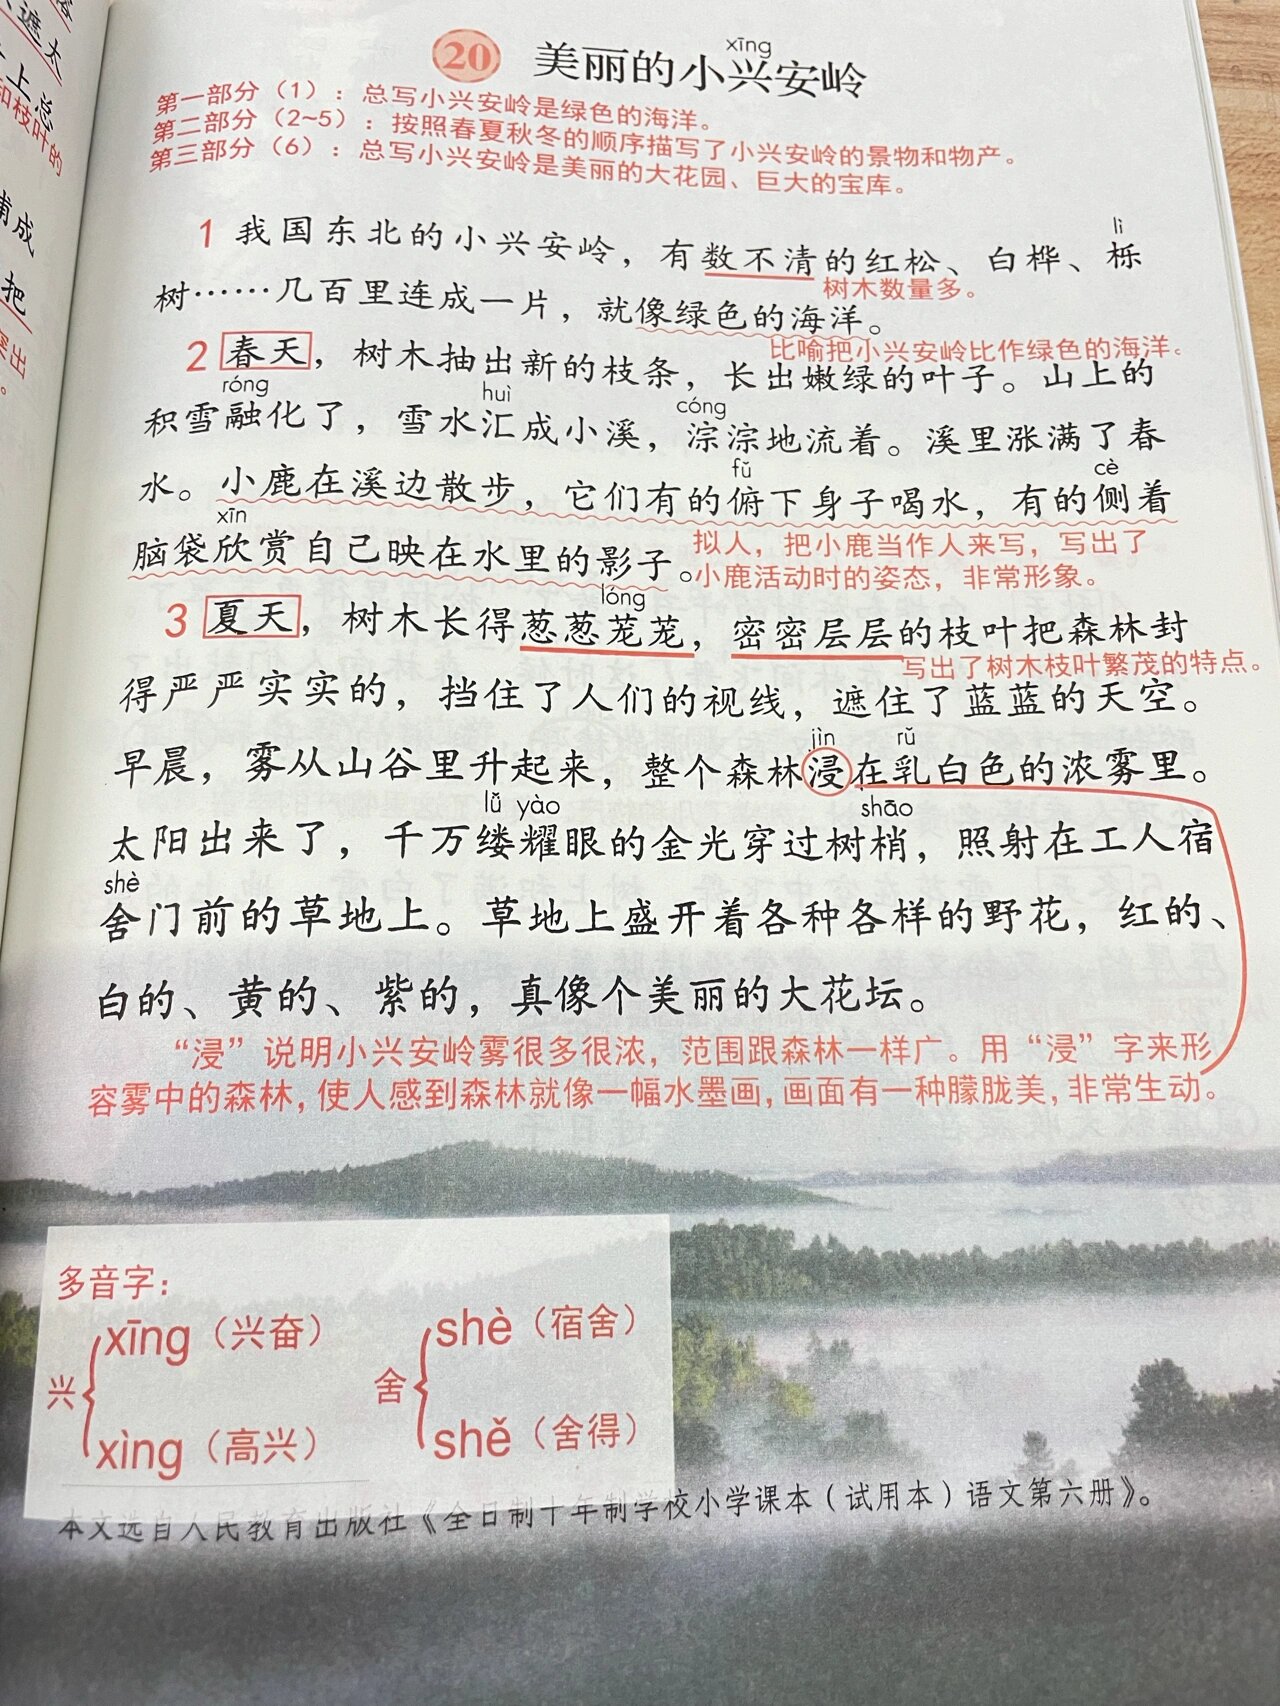 xīng
20 美丽的小兴安岭
第一部分（1）：总写小兴安岭是绿色的海洋。
第二部分（2~5）：按照春夏秋冬的顺序描写了小兴安岭的景物和物产。
第三部分（6）：总写小兴安岭是美丽的大花园、巨大的宝库。
lì
1 我国东北的小兴安岭，有数不清的红松、白桦、栎
树木数量多。
树……几百里连成一片，就像绿色的海洋。
比喻把小兴安岭比作绿色的海洋。
2 春天，树木抽出新的枝条，长出嫩绿的叶子。山上的
róng huì cóng
积雪融化了，雪水汇成小溪，淙淙地流着。溪里涨满了春
fǔ cè
水。小鹿在溪边散步，它们有的俯下身子喝水，有的侧着
xīn
脑袋欣赏自己映在水里的影子。
拟人，把小鹿当作人来写，写出了
小鹿活动时的姿态，非常形象。
lóng
3 夏天，树木长得葱葱茏茏，密密层层的枝叶把森林封
写出了树木枝叶繁茂的特点。
得严严实实的，挡住了人们的视线，遮住了蓝蓝的天空。
jìn rǔ
早晨，雾从山谷里升起来，整个森林浸在乳白色的浓雾里。
lǚ yào shāo
太阳出来了，千万缕耀眼的金光穿过树梢，照射在工人宿
shè
舍门前的草地上。草地上盛开着各种各样的野花，红的、
白的、黄的、紫的，真像个美丽的大花坛。
“浸”说明小兴安岭雾很多很浓，范围跟森林一样广。用“浸”字来形
容雾中的森林，使人感到森林就像一幅水墨画，画面有一种朦胧美，非常生动。
多音字：
兴 xīng（兴奋） xìng（高兴）
舍 shè（宿舍） shě（舍得）
本文选自人民教育出版社《全日制十年制学校小学课本（试用本）语文第六册》。